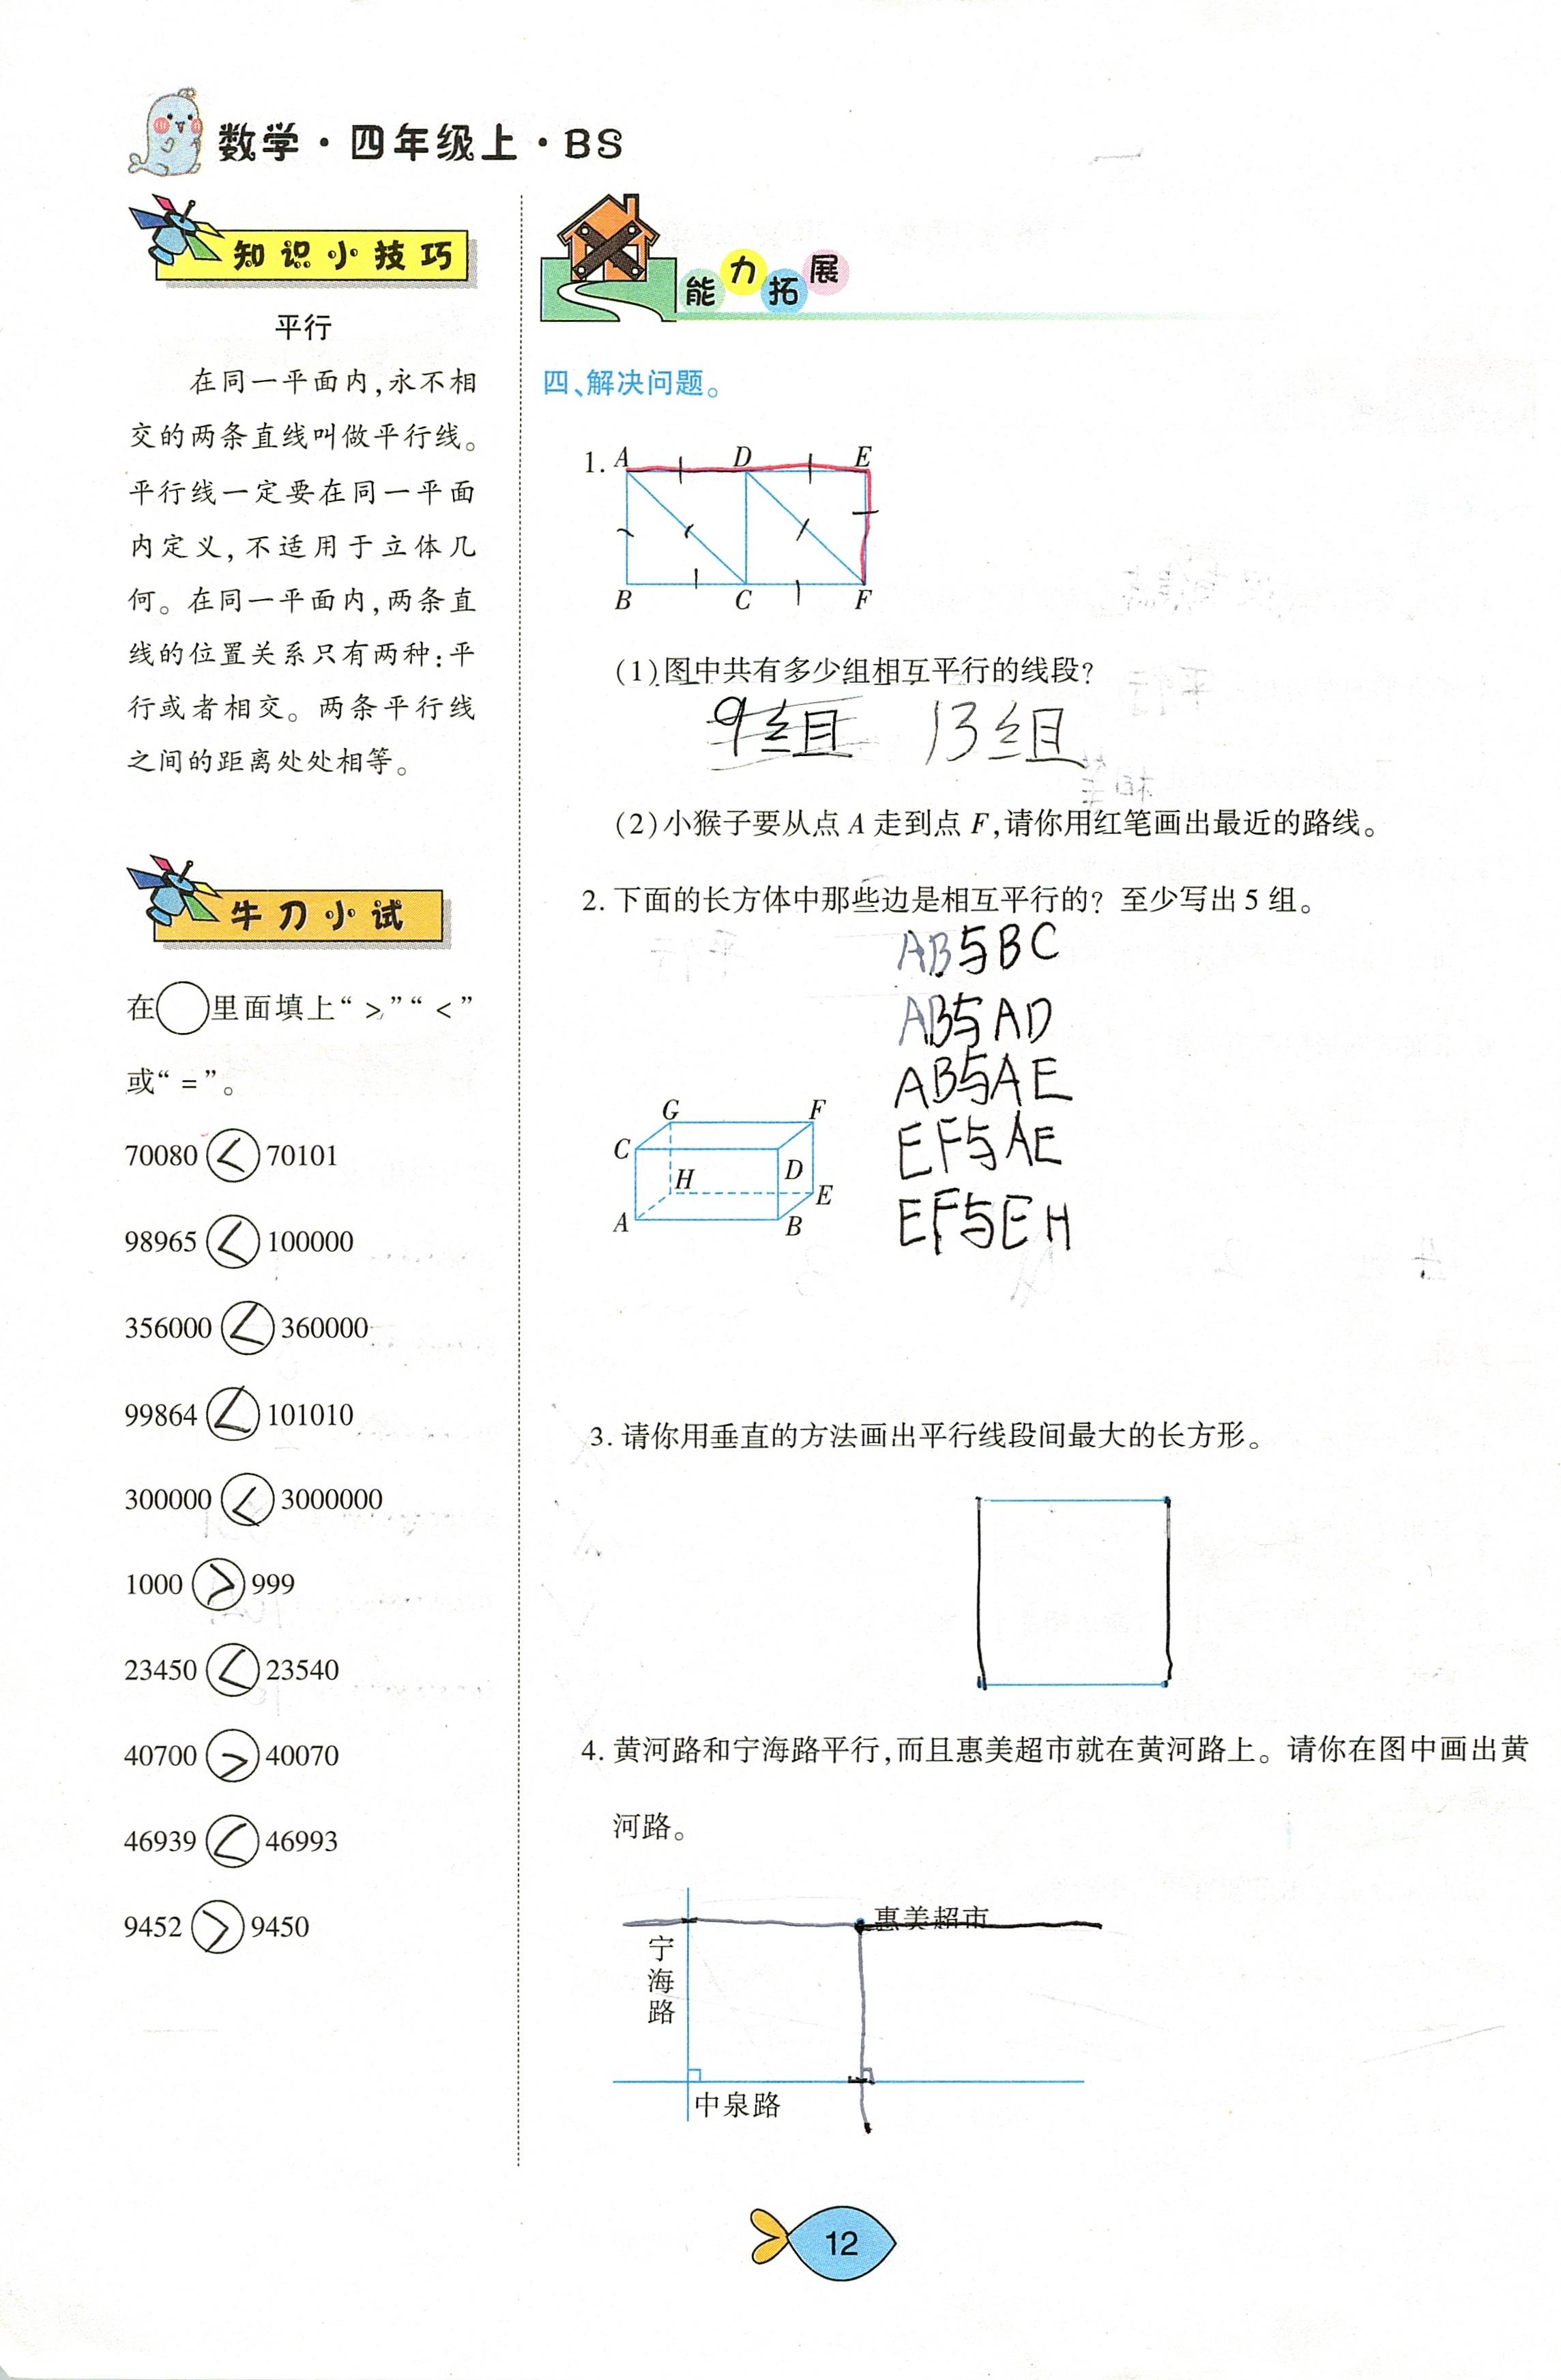 数学·四年级上·BS
知识小技巧
平行
在同一平面内,永不相
交的两条直线叫做平行线。
平行线一定要在同一平面
内定义,不适用于立体几
何。在同一平面内,两条直
线的位置关系只有两种:平
行或者相交。两条平行线
之间的距离处处相等。
牛刀小试
在○里面填上“>”“<”
或“=”。
70080<70101
98965<100000
356000<360000
99864<101010
300000<3000000
1000>999
23450<23540
40700>40070
46939<46993
9452>9450
能力拓展
四、解决问题。
1. A D E
B C F
(1)图中共有多少组相互平行的线段?
9组 13组
(2)小猴子要从点A走到点F,请你用红笔画出最近的路线。
2. 下面的长方体中那些边是相互平行的? 至少写出5组。
AB与BC
AB与AD
AB与AE
EF与AE
EF与EH
G F
C D
H E
A B
3. 请你用垂直的方法画出平行线段间最大的长方形。
4. 黄河路和宁海路平行,而且惠美超市就在黄河路上。请你在图中画出黄
河路。
惠美超市
宁海路
中泉路
12